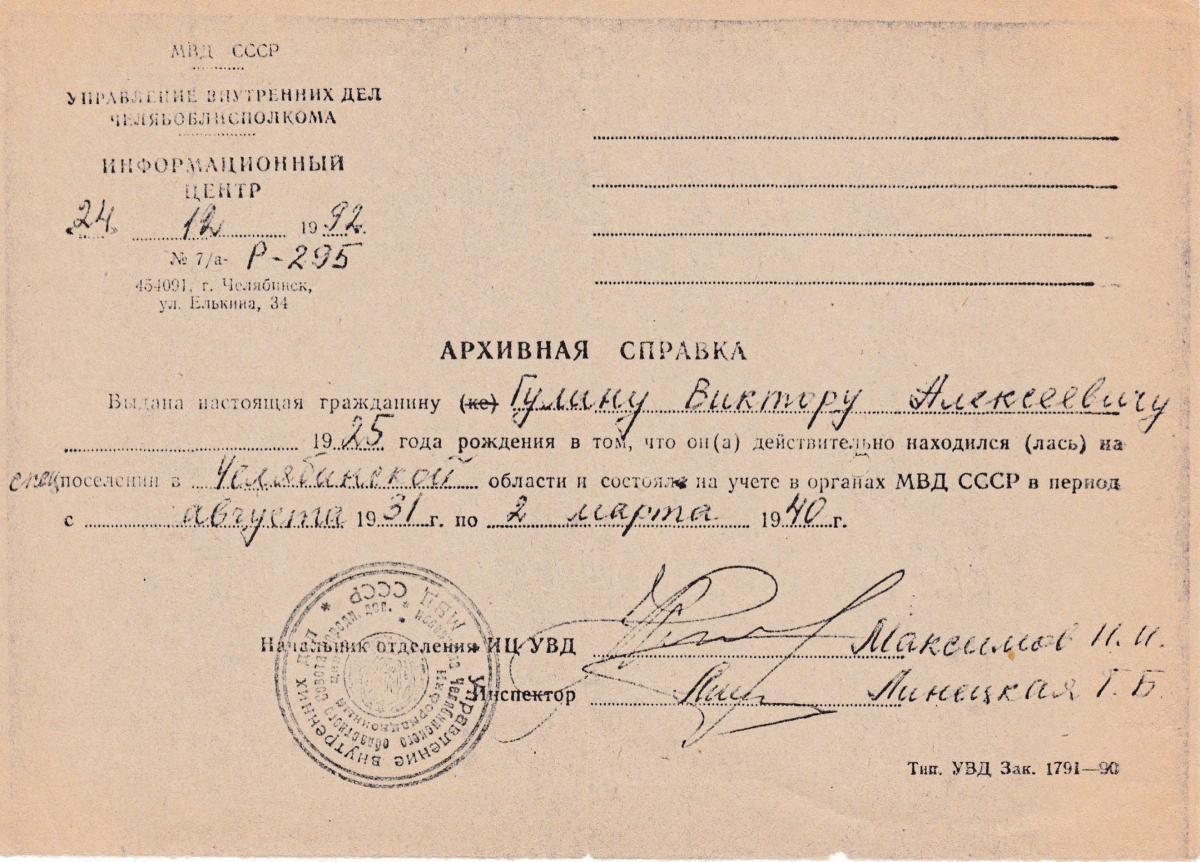 МВД СССР
УПРАВЛЕНИЕ ВНУТРЕННИХ ДЕЛ
ЧЕЛЯБОБЛИСПОЛКОМА
ИНФОРМАЦИОННЫЙ
ЦЕНТР
„24“ 12 1992.
№ 7/а- Р-295
454091, г. Челябинск,
ул. Елькина, 34
АРХИВНАЯ СПРАВКА
Выдана настоящая гражданину (ке) Гулину Виктору Алексеевичу
1925 года рождения в том, что он(а) действительно находился (лась) на
спецпоселении в Челябинской области и состоял на учете в органах МВД СССР в период
с августа 1931 г. по 2 марта 1940 г.
Начальник отделения ИЦ УВД Максимов Н. И.
Инспектор Линецкая Г. Б.
Управление внутренних дел
МВД СССР
Челябинского областного Совета народн. деп.
Информационный центр
Тип. УВД Зак. 1791—90